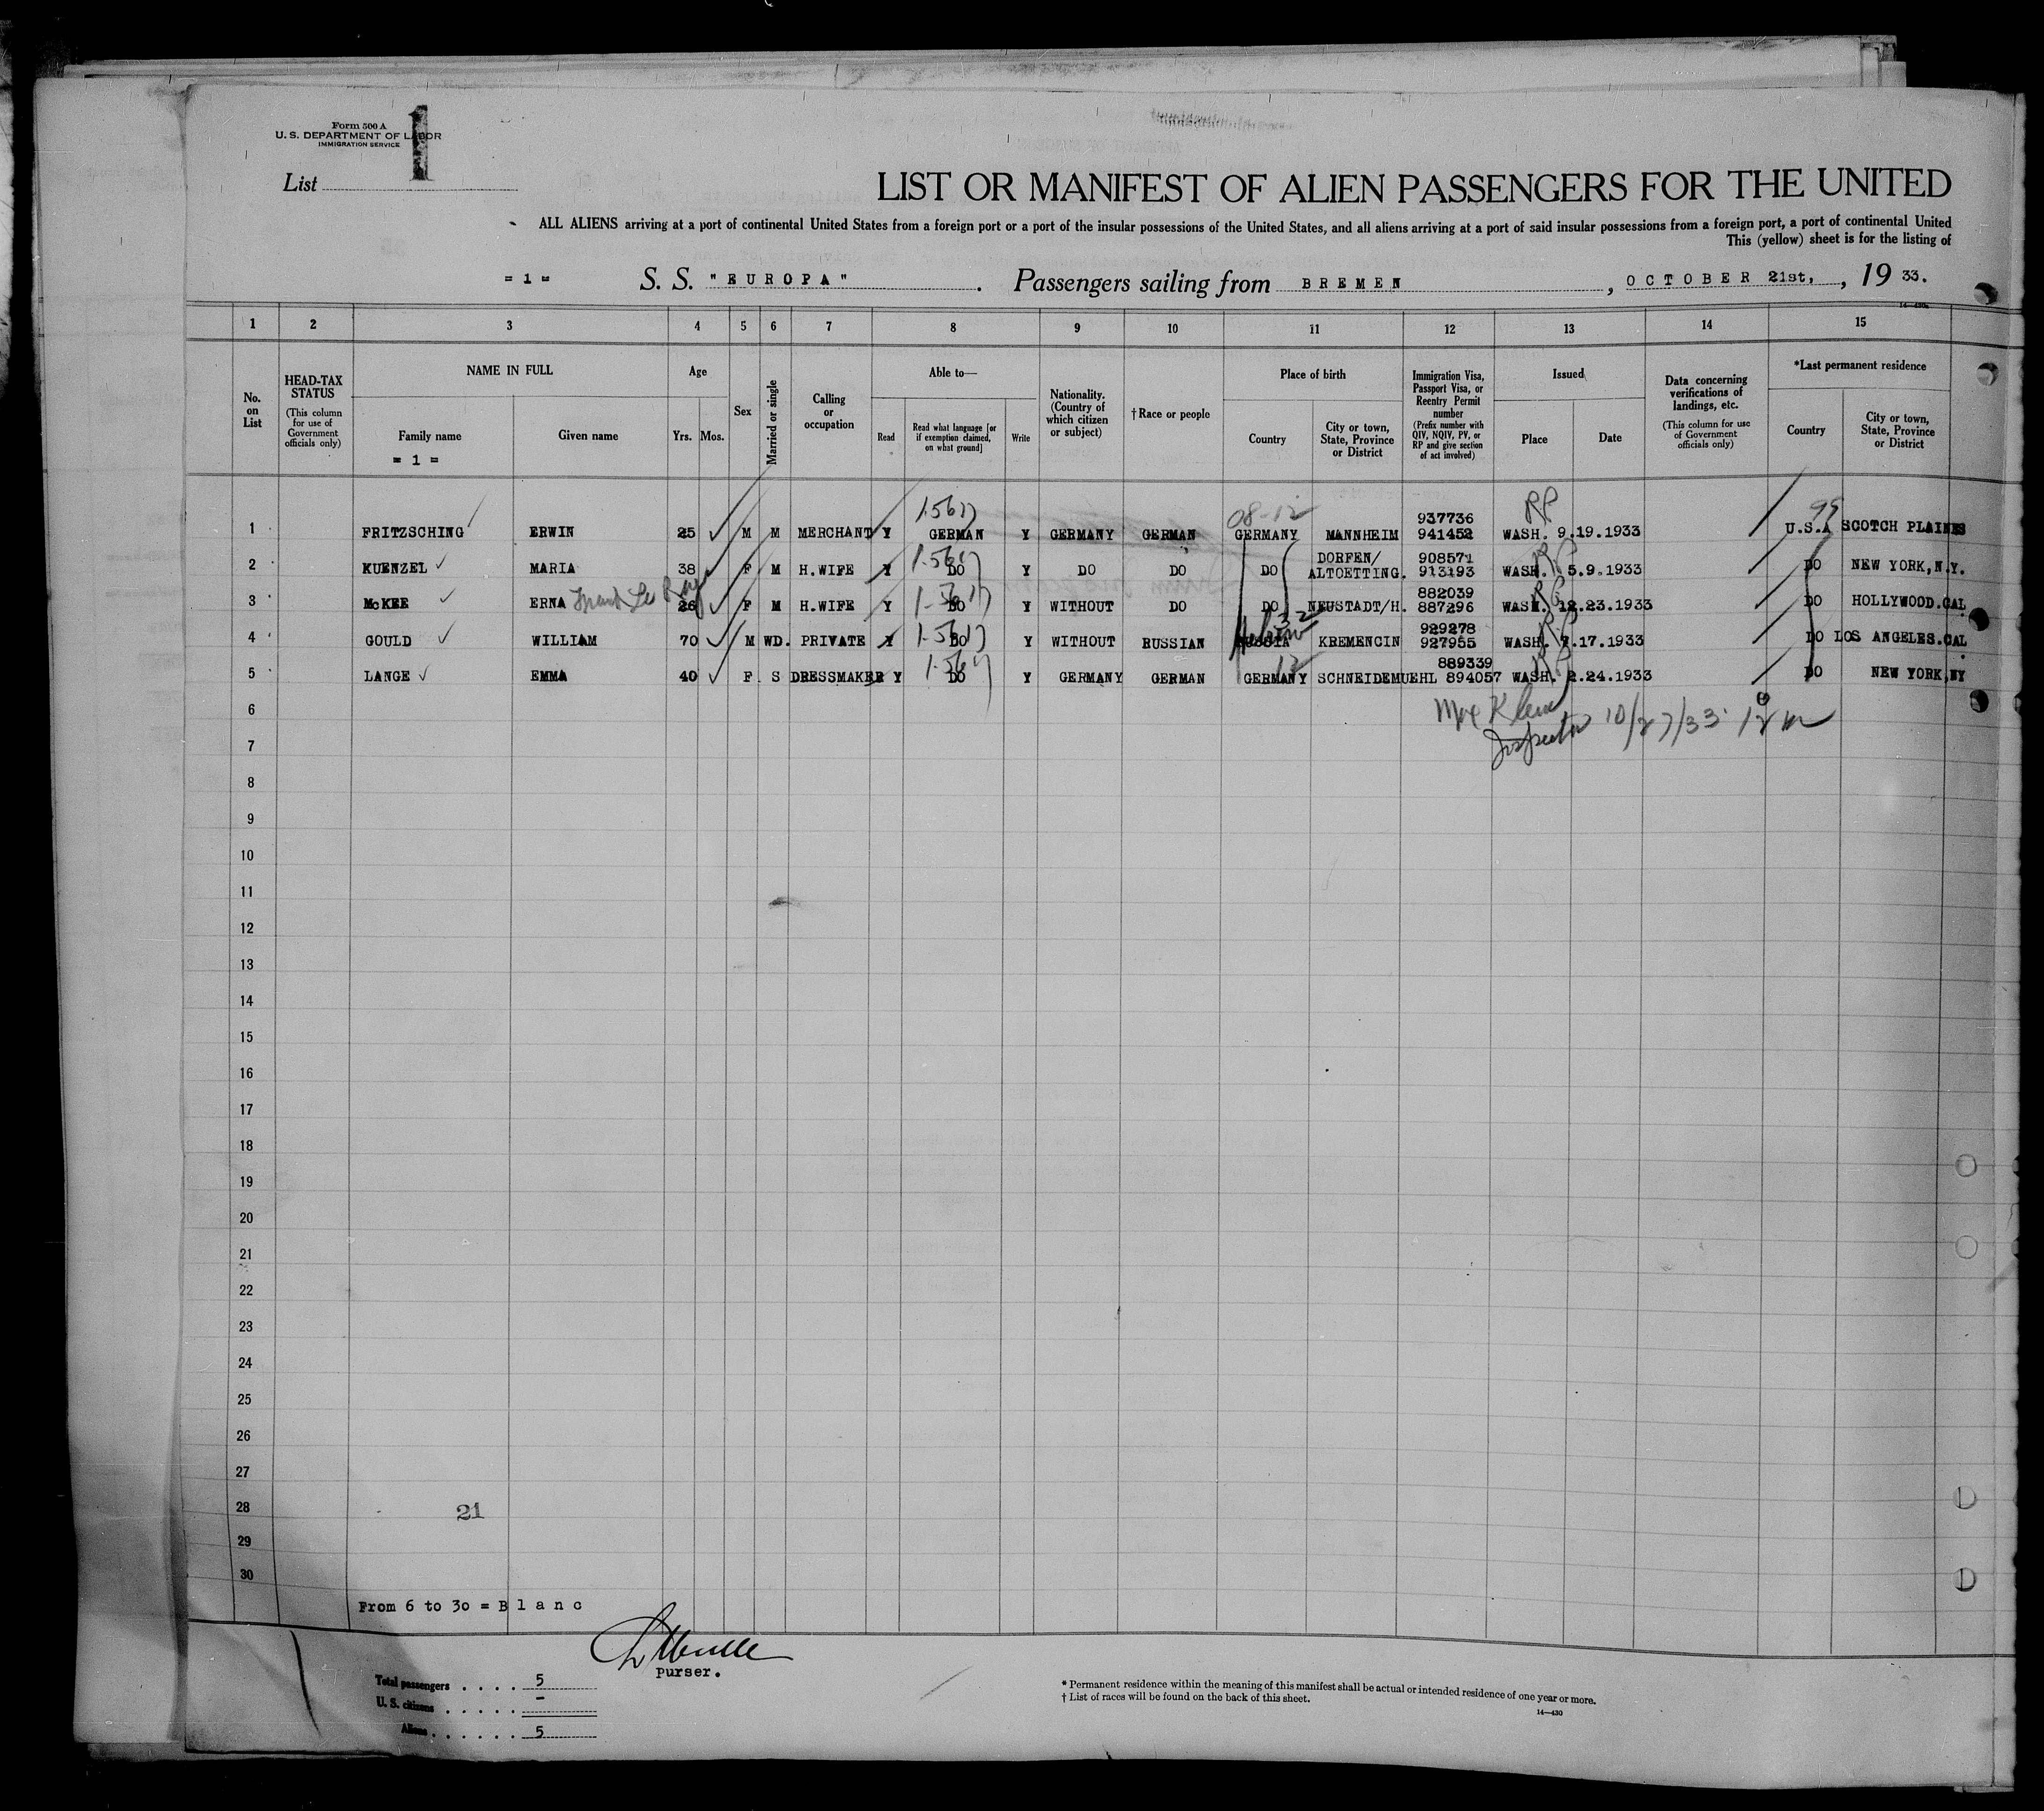 Form 500 A
U. S. DEPARTMENT OF LABOR
IMMIGRATION SERVICE
1
List
LIST OR MANIFEST OF ALIEN PASSENGERS FOR THE UNITED
ALL ALIENS arriving at a port of continental United States from a foreign port or a port of the insular possessions of the United States, and all aliens arriving at a port of said insular possessions from a foreign port, a port of continental United
This (yellow) sheet is for the listing of
= 1 = S. S. "EUROPA". Passengers sailing from BREMEN, OCTOBER 21st, , 19 33.
1 2 3 4 5 6 7 8 9 10 11 12 13 14 15
No. on List
HEAD-TAX STATUS (This column for use of Government officials only)
NAME IN FULL
Family name
= 1 =
Given name
Age
Yrs. Mos.
Sex
Married or single
Calling or occupation
Able to—
Read
Read what language [or if exemption claimed, on what ground]
Write
Nationality. (Country of which citizen or subject)
†Race or people
Place of birth
Country
City or town, State, Province or District
Immigration Visa, Passport Visa, or Reentry Permit number (Prefix number with QIV, NQIV, PV, or RP and give section of act involved)
Issued
Place
Date
Data concerning verifications of landings, etc. (This column for use of Government officials only)
*Last permanent residence
Country
City or town, State, Province or District
RP
08-12
99
1 FRITZSCHING ERWIN 25 M M MERCHANT Y GERMAN Y GERMANY GERMAN GERMANY MANNHEIM 937736 941452 WASH. 9.19.1933 U.S.A SCOTCH PLAINES
2 KUENZEL MARIA 38 F M H.WIFE Y DO Y DO DO DO DORFEN/ ALTOETTING. 908571 913193 WASH. 5.9.1933 DO NEW YORK,N.Y.
3 McKEE ERNA 26 F M H.WIFE Y DO Y WITHOUT DO DO NEUSTADT/H. 882039 887296 WASH. 12.23.1933 DO HOLLYWOOD.CAL
4 GOULD WILLIAM 70 M WD. PRIVATE Y DO Y WITHOUT RUSSIAN RUSSIA KREMENCIN 929278 927955 WASH. 7.17.1933 DO LOS ANGELES.CAL.
5 LANGE EMMA 40 F S DRESSMAKER Y DO Y GERMANY GERMAN GERMANY SCHNEIDEMUEHL 889339 894057 WASH. 2.24.1933 DO NEW YORK,NY
6 Max Klein
7 Inspector 10/27/33
8
9
10
11
12
13
14
15
16
17
18
19
20
21
22
23
24
25
26
27
28 21
29
30
From 6 to 30 = Blanc
purser.
Total passengers . . . . 5
U. S. citizens . . . . . –
Aliens . . . . . . 5
* Permanent residence within the meaning of this manifest shall be actual or intended residence of one year or more.
† List of races will be found on the back of this sheet.
14—430